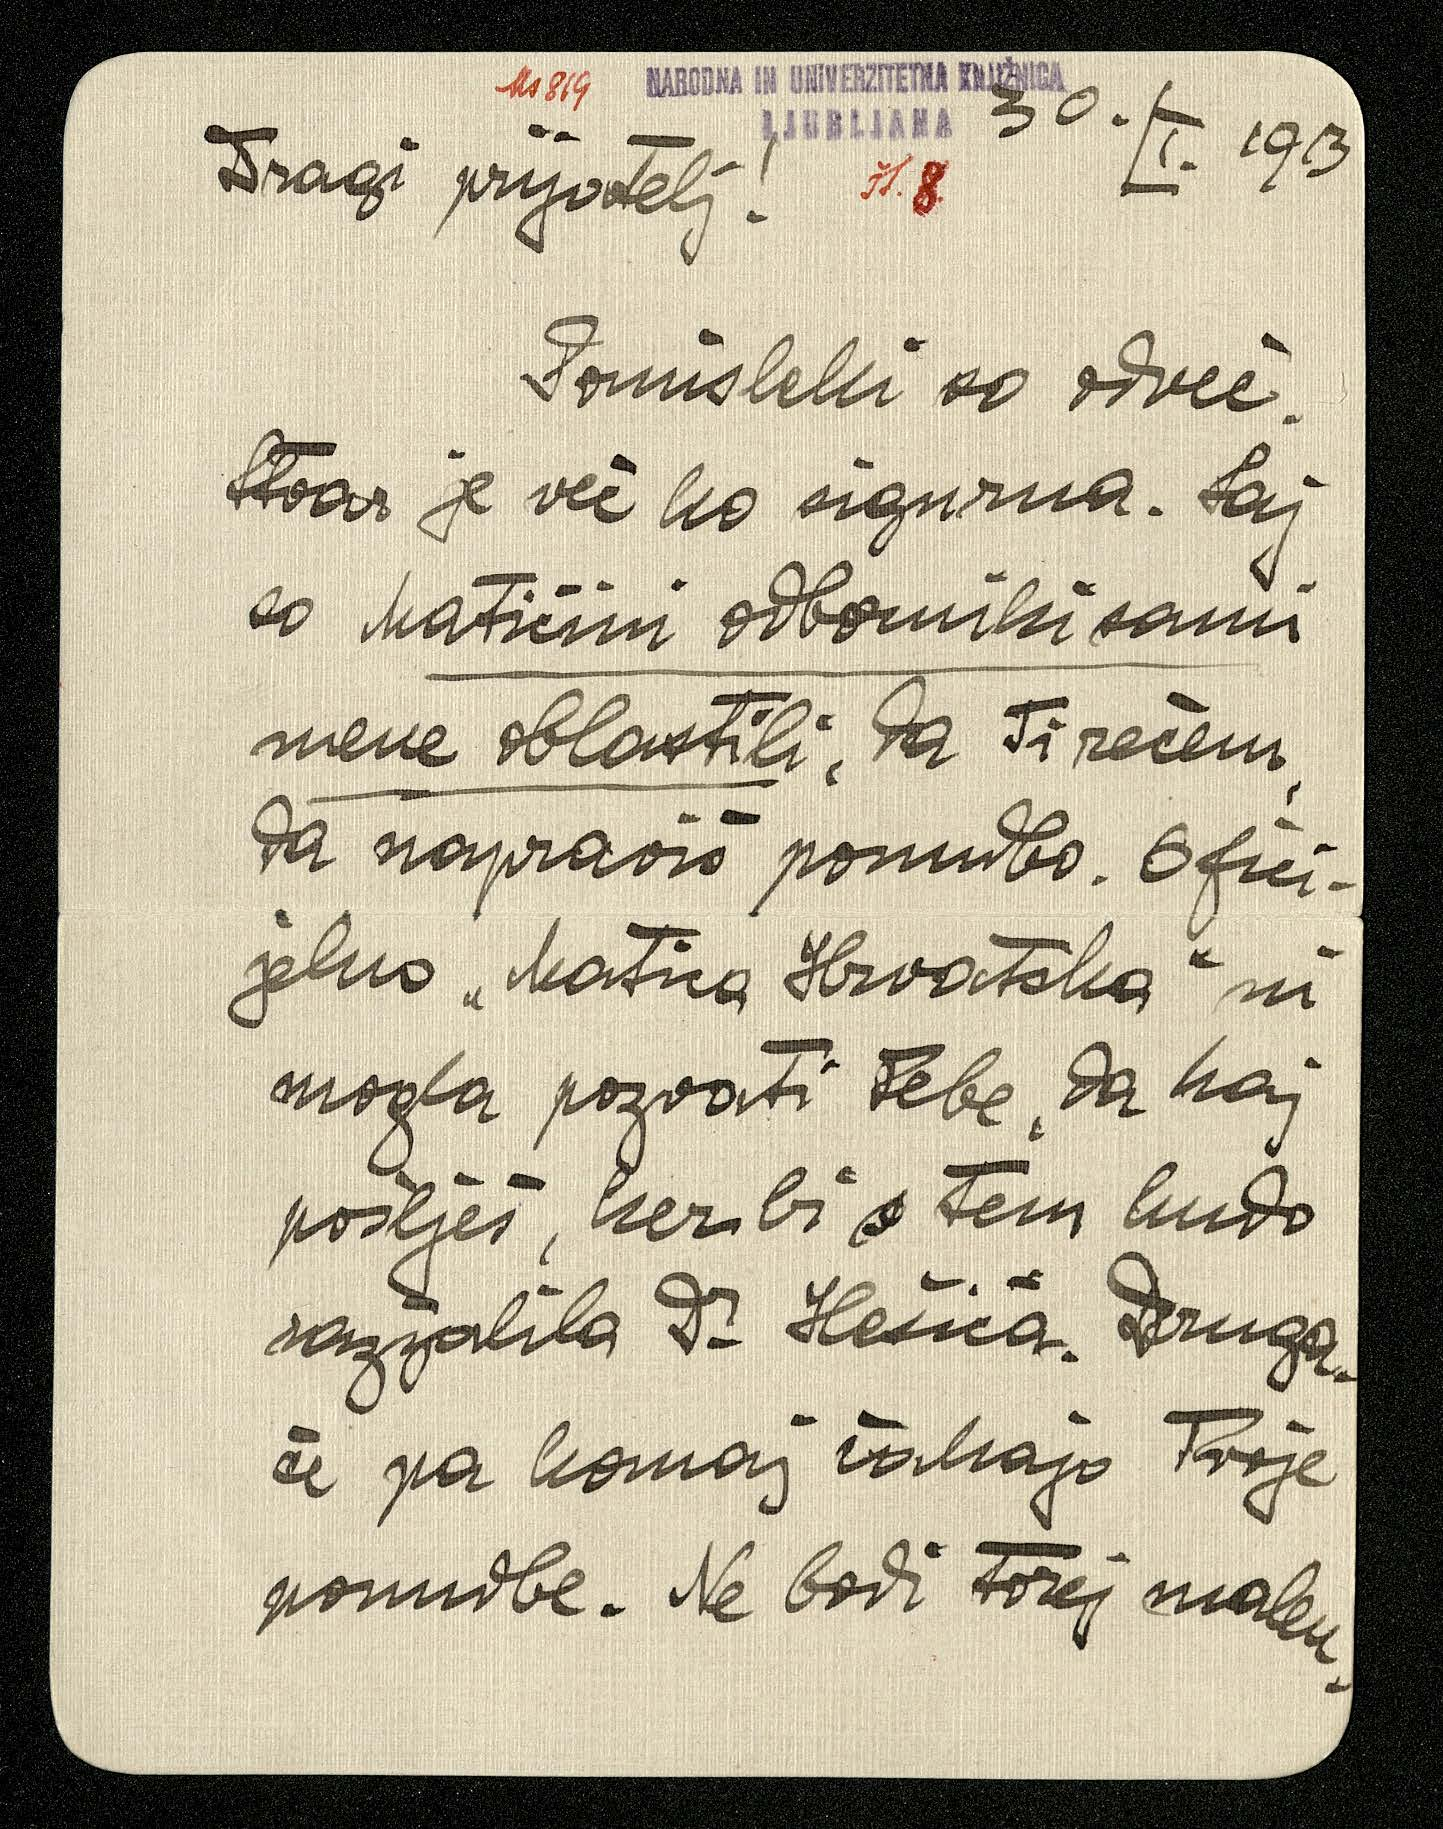 Ms 819
NARODNA IN UNIVERZITETNA KNJIŽNICA
LJUBLJANA
30. I. 1913
Dragi prijatelj!
št. 8.
Pomisleki so odveč.
Stvar je več ko sigurna. Saj
so Matičini odborniki sami
mene oblastili, da Ti rečem,
da napraviš ponudbo. Ofici-
jelno „Matica Hrvatska“ ni
mogla pozvati Tebe, da kaj
pošlješ, ker bi s tem hudo
razžalila Dr. Ilešiča. Druga-
če pa komaj čakajo Tvoje
ponudbe. Ne bodi torej malen-